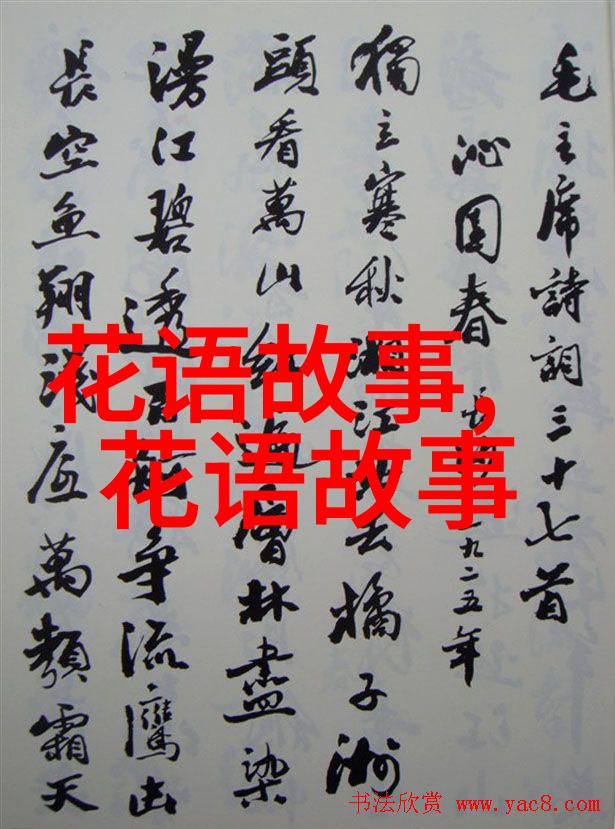 毛主席詩詞三十七首
沁園春 長沙 一九二五年
獨立寒秋湘江北去橘子洲
頭看萬山紅遍層林盡染
漫江碧透百舸争流鷹击
長空魚翔淺底萬類霜天
花语故事,
花语故事
书法欣赏 www.yac8.com